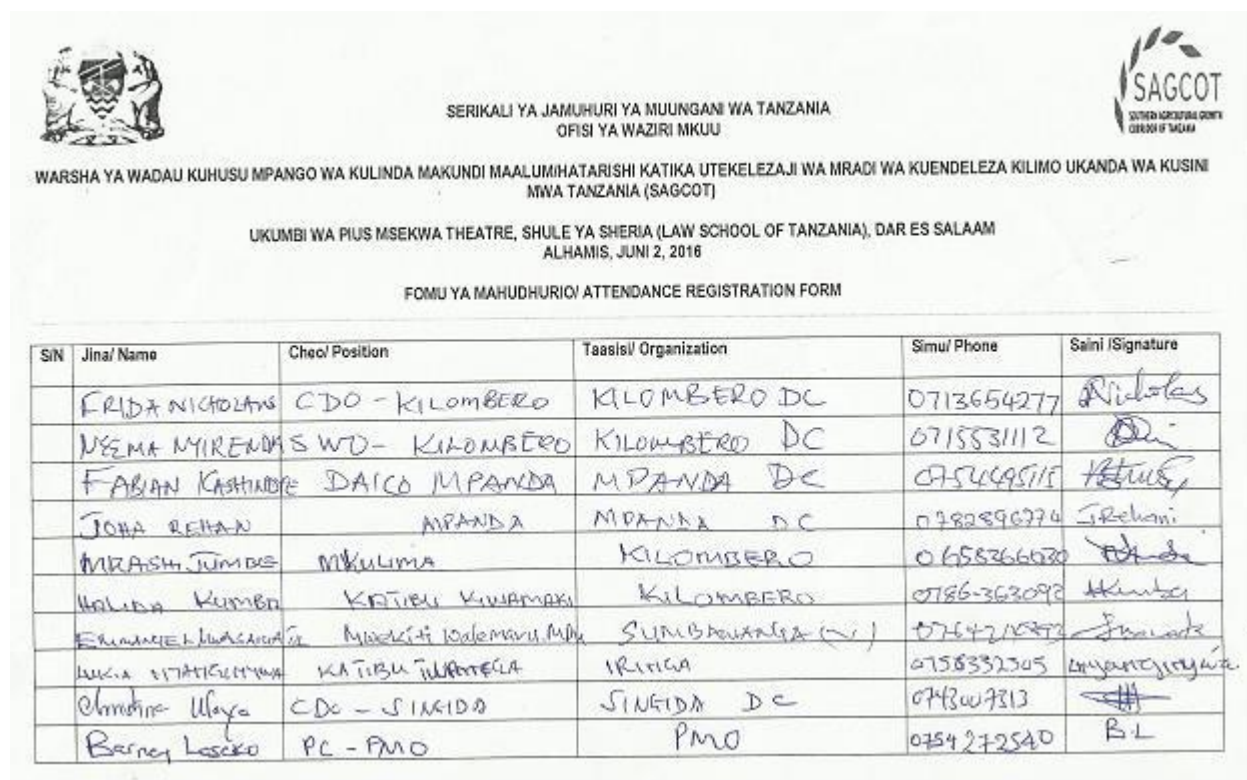 SAGCOT
SOUTHERN AGRICULTURAL GROWTH
CORRIDOR OF TANZANIA
SERIKALI YA JAMUHURI YA MUUNGANI WA TANZANIA
OFISI YA WAZIRI MKUU
WARSHA YA WADAU KUHUSU MPANGO WA KULINDA MAKUNDI MAALUM/HATARISHI KATIKA UTEKELEZAJI WA MRADI WA KUENDELEZA KILIMO UKANDA WA KUSINI
MWA TANZANIA (SAGCOT)
UKUMBI WA PIUS MSEKWA THEATRE, SHULE YA SHERIA (LAW SCHOOL OF TANZANIA), DAR ES SALAAM
ALHAMIS, JUNI 2, 2016
FOMU YA MAHUDHURIO/ ATTENDANCE REGISTRATION FORM
S/N Jina/ Name Cheo/ Position Taasisi/ Organization Simu/ Phone Saini /Signature
FRIDA CDO - KILOMBERO KILOMBERO DC 0713654277 Nicholas
NYEMA NYIRENDA SWO - KILOMBERO KILOMBERO DC 0715531112
FABIAN DAICO MPANDA MPANDA DC
JOHA REHAN MPANDA MPANDA DC 0782896774 JRehani
JUMBE MKULIMA KILOMBERO
HALIDA KUMBA KATIBU KIWAMAKI KILOMBERO 0786-363092
SUMBAWANGA
KATIBU IRINGA
Christine CDO - SINGIDA SINGIDA DC
Barney PC - PMO PMO 0754272540 B.L